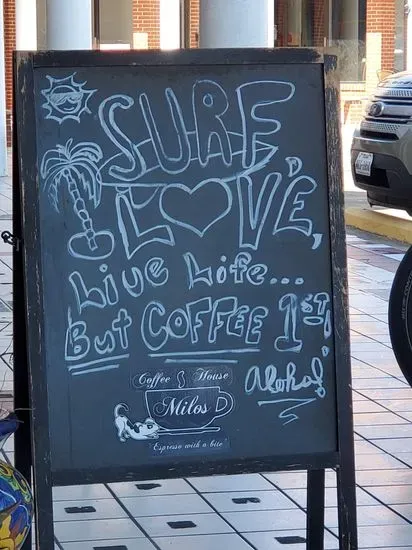 SURF
LOVE,
Live Life...
But COFFEE 1ST!
Aloha!
Coffee House
Milos
Espresso with a bite